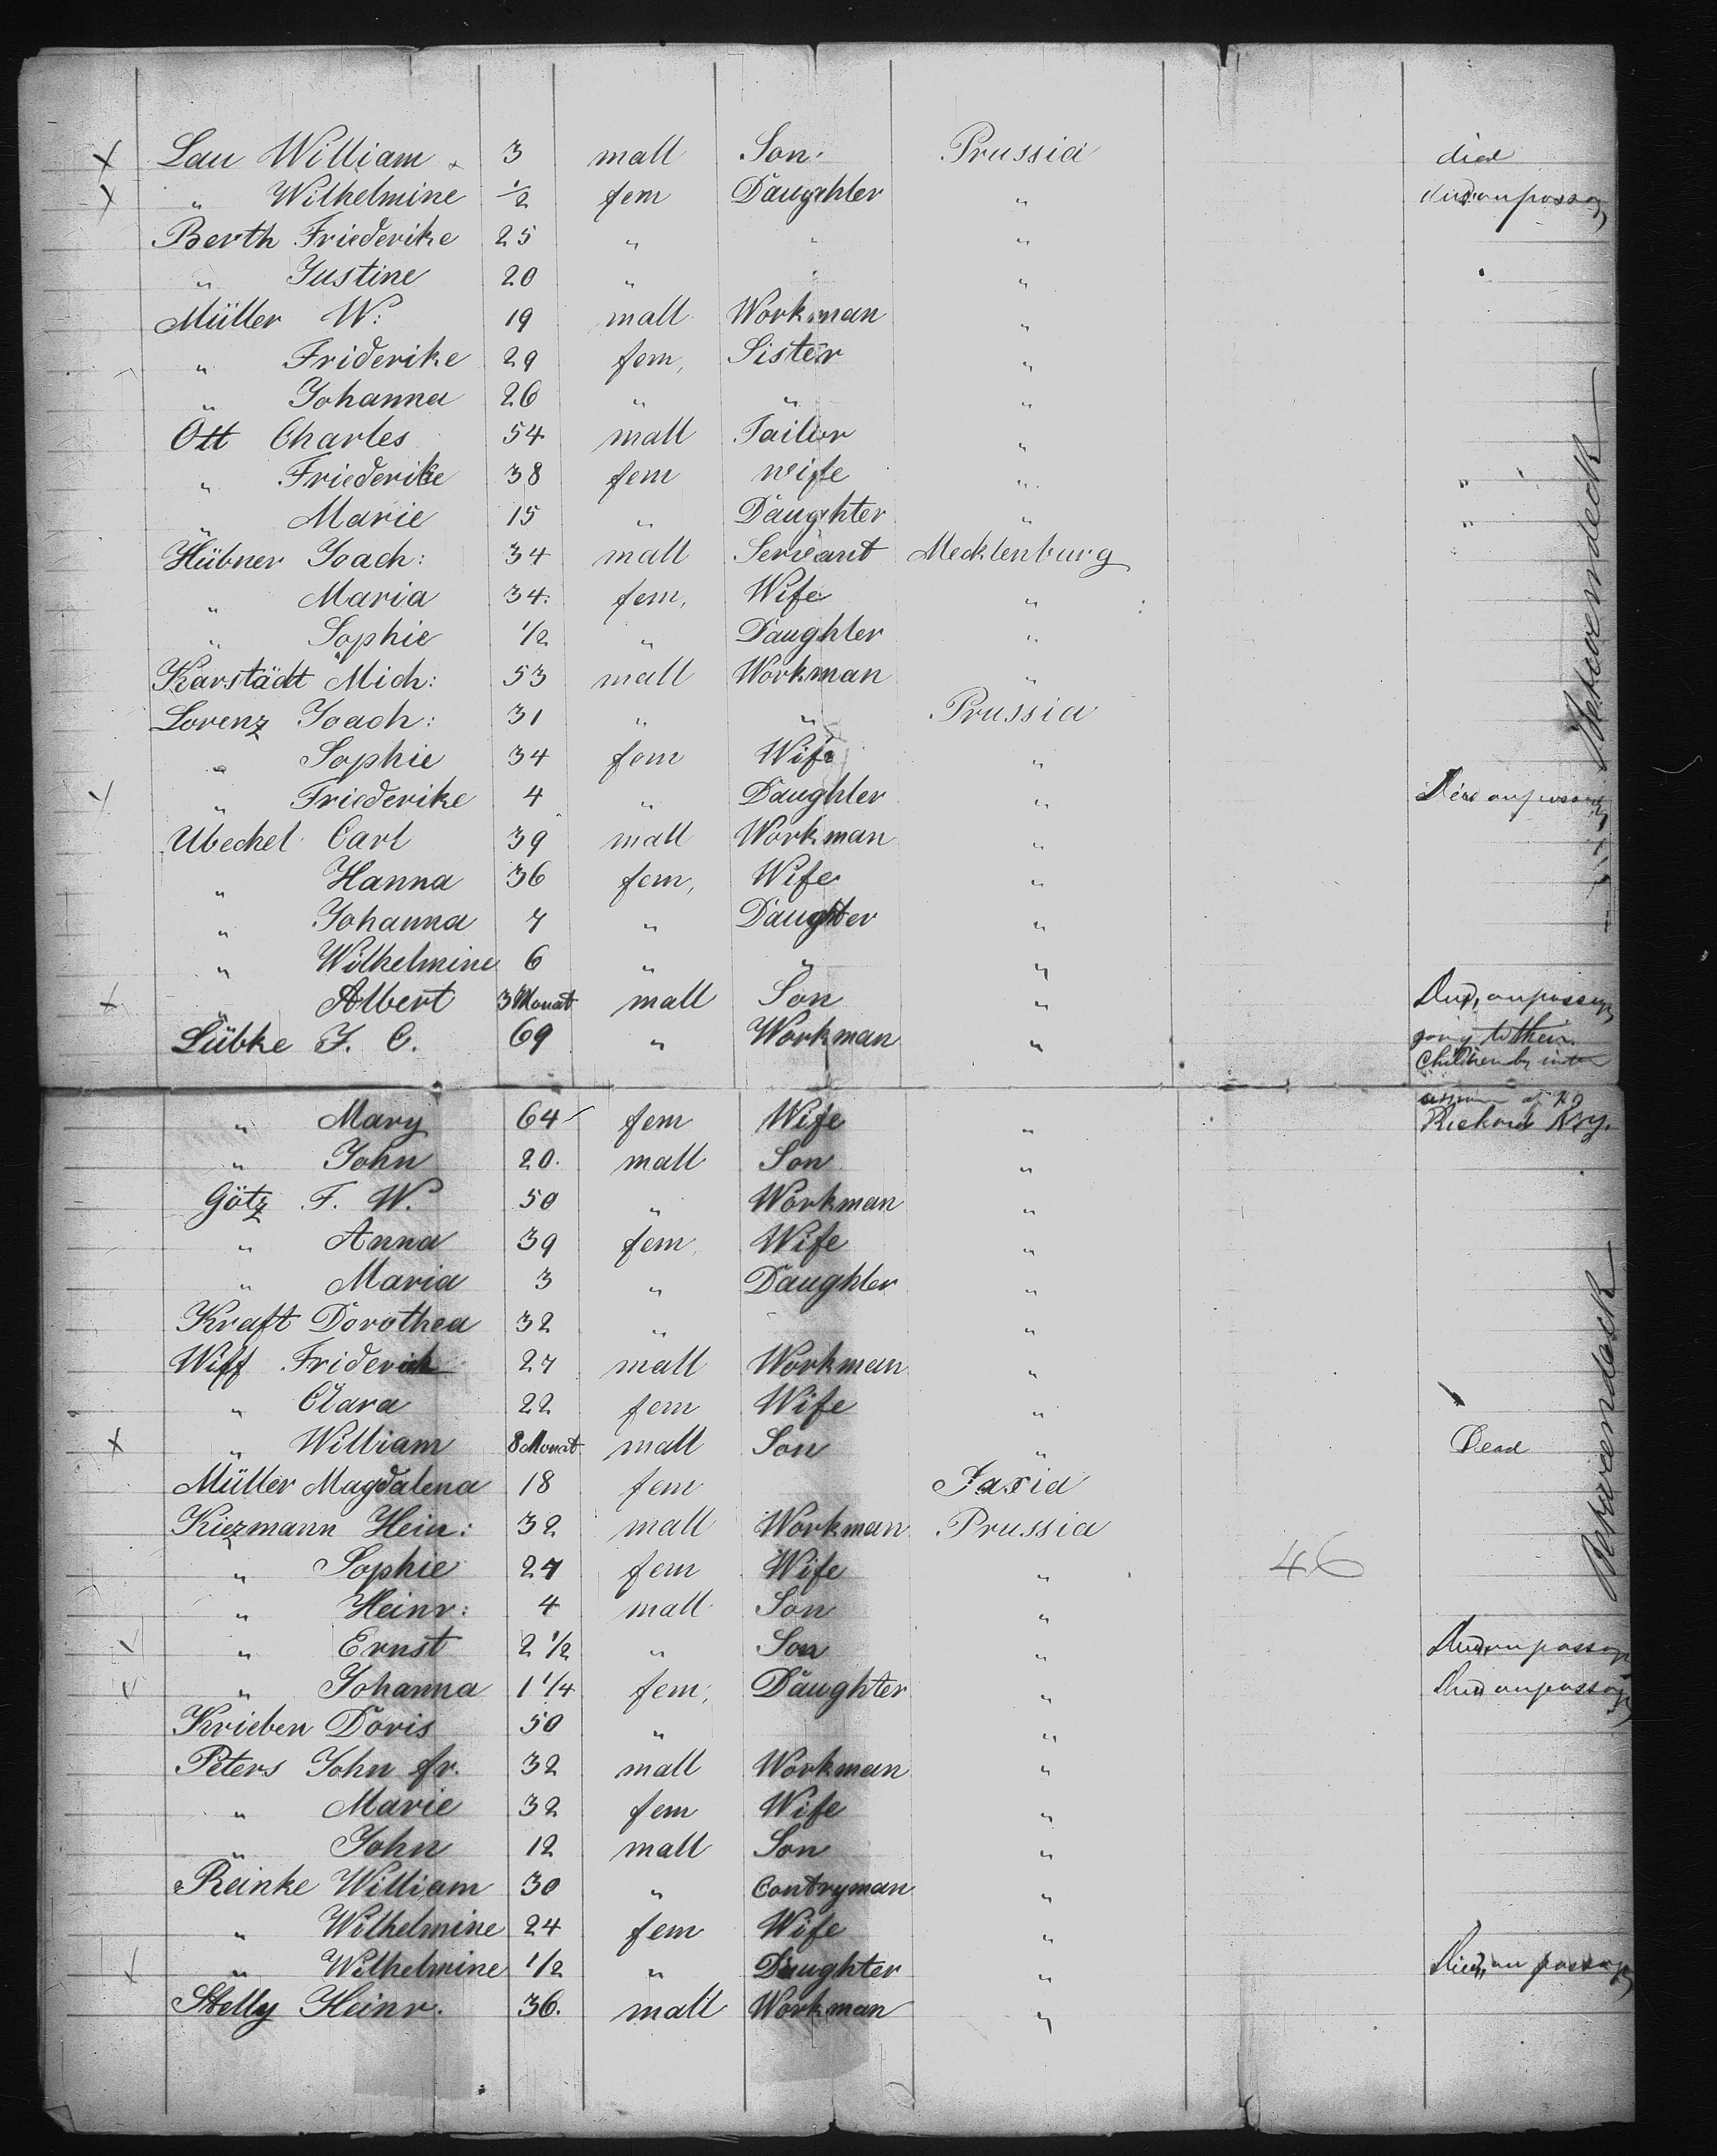 Lau William 3 mall Son Prussia died
" Wilhelmine 1/2 fem Daughter " died on passag
Berth Friederike 25 " " "
" Justine 20 " " "
Müller W: 19 mall Workman "
" Friderike 29 fem, Sister "
" Johanna 26 " " "
Ott Charles 54 mall Tailor "
" Friederike 38 fem wife " "
" Marie 15 " Daughter " "
Hübner Joach: 34 mall Servant Mecklenburg
" Maria 34. fem, Wife "
" Sophie 1/2 " Daughter "
Karstädt Mich: 53 mall Workman "
Lorenz Joach: 31 " " Prussia
" Sophie 34 fem Wife "
" Friederike 4 " Daughter " Died on passag
Ubechel Carl 39 mall Workman "
" Hanna 36 fem, Wife "
" Johanna 7 " Daughter "
" Wilhelmine 6 " " "
" Albert 3 Monat mall Son " Died, on passag
Lübke J. C. 69 " Workman " gong to their
Children by
" Mary 64 fem Wife "
" John 20. mall Son "
Götz F. W. 50 " Workman "
" Anna 39 fem, Wife "
" Maria 3 " Daughter "
Kraft Dorothea 32 " "
Wiff Friderich 27 mall Workman "
" Clara 22 fem Wife "
" William 8 Monat mall Son " Dead
Müller Magdalena 18 fem Saxia
Kiezmann Hein: 32 mall Workman Prussia
" Sophie 27 fem Wife " 46
" Heinr: 4 mall Son "
" Ernst 2 1/2 " Son " Died on passag
" Johanna 1 1/4 fem, Daughter " Died on passag
Krieben Doris 50 " "
Peters John fr. 32 mall Workman "
" Marie 32 fem Wife "
" John 12 mall Son "
Reinke William 30 " Contryman "
" Wilhelmine 24 fem Wife "
" Wilhelmine 1/2 " Daughter " Died, on passag
Stelly Heinr. 36. mall Workman "
Betweendeck
Betweendeck